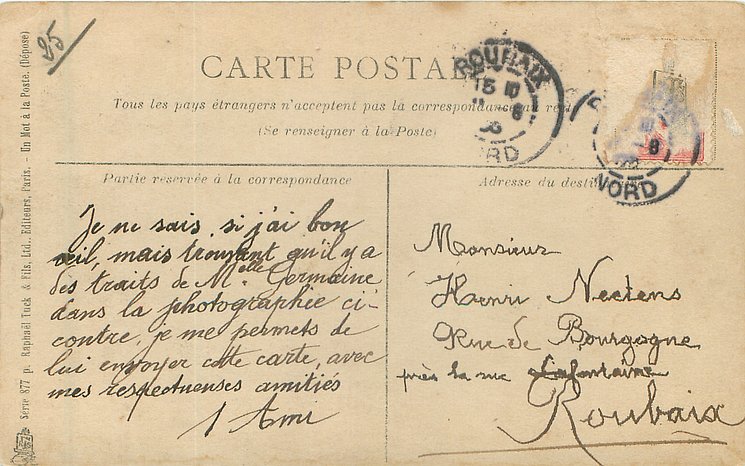 25
CARTE POSTALE
Tous les pays étrangers n'acceptent pas la correspondance au
(Se renseigner à la Poste)
ROUBAIX
15
8
NORD
8
NORD
Partie reservée à la correspondance
Adresse du desti
Je ne sais si j'ai bon
œil, mais trouvant qu'il y a
des traits de Melle Germaine
dans la photographie ci-
contre, je me permets de
lui envoyer cette carte, avec
mes respectueuses amitiés
1 Ami
Monsieur
Henri Nectens
Rue de Bourgogne
près la rue Lafontaine
Roubaix
Série 877 p. Raphaël Tuck & Fils, Ltd., Editeurs, Paris. - Un Mot à la Poste. (Déposé)